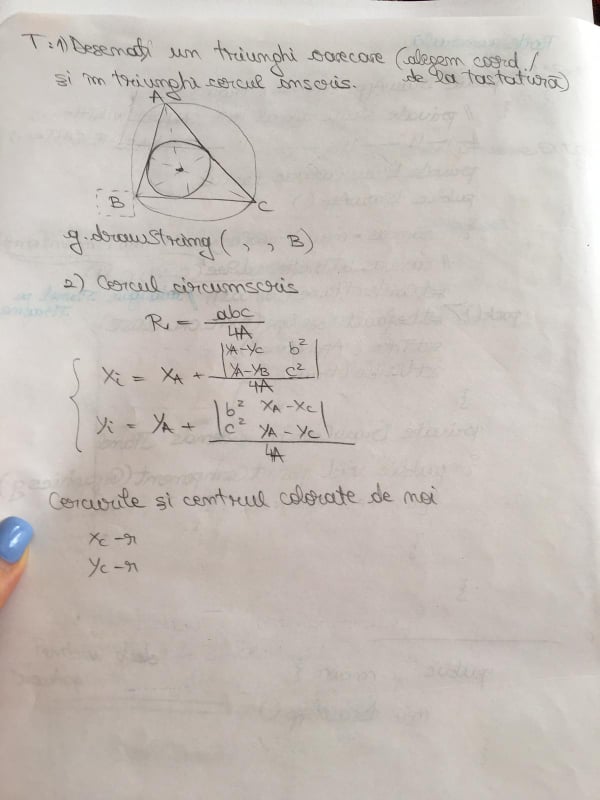 T: 1) Desenați un triunghi oarecare (alegem coord./
și în triunghi cercul înscris. de la tastatură)
A
B
C
g.drawString( , , B)
2) Cercul circumscris
R = abc / 4A
Xi = XA + |YA-YC b²| / 4A
|YA-YB c²|
Yi = YA + |b² XA-XC| / 4A
|c² YA-YC|
Cercurile și centrul colorate de noi
xc -r
yc -r